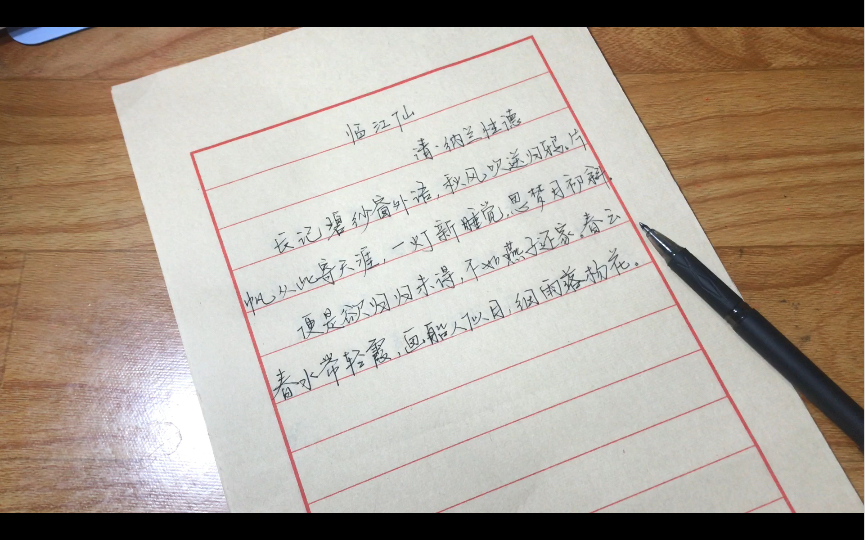 临江仙
清·纳兰性德
长记碧纱窗外语，秋风吹送归鸦。片
帆从此寄天涯，一灯新睡觉，思梦月初斜。
便是欲归归未得，不如燕子还家。春云
春水带轻霞，画船人似月，细雨落杨花。